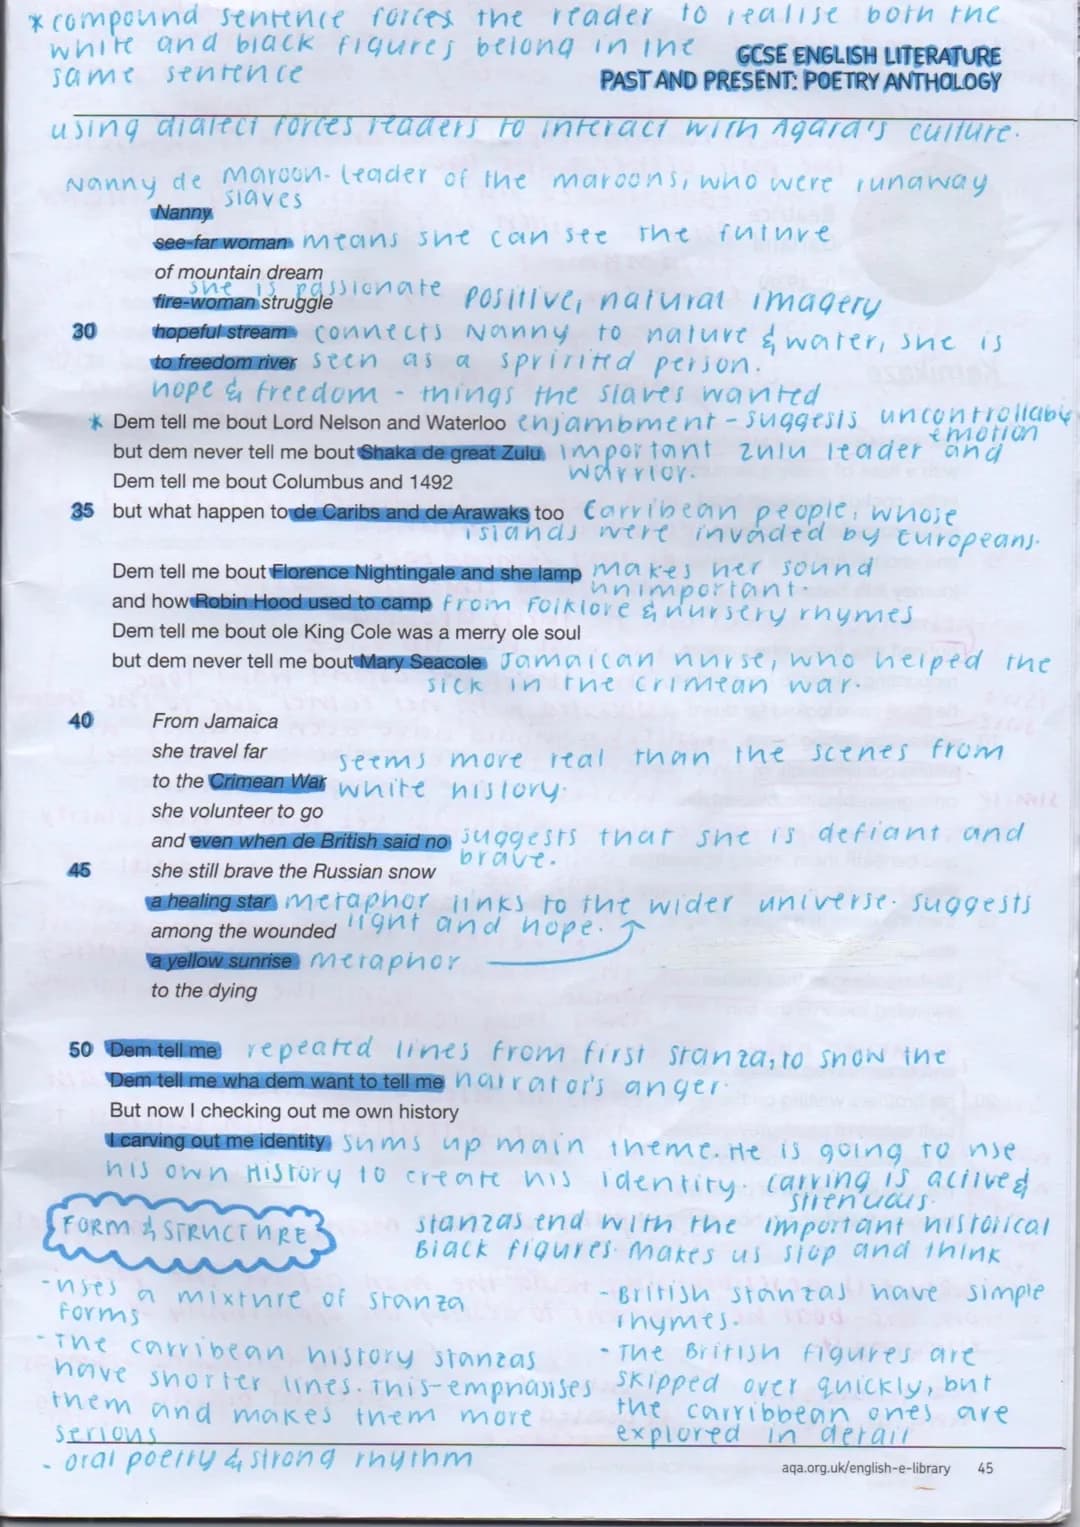 * compound sentence forces the reader to realise both the
white and black figures belong in the
same sentence
GCSE ENGLISH LITERATURE
PAST AND PRESENT: POETRY ANTHOLOGY
using dialect forces readers to interact with Agard's culture.
Nanny de maroon - leader of the maroons, who were runaway
slaves
Nanny
see-far woman means she can see the future
of mountain dream
she is passionate
fire-woman struggle positive, natural imagery
30 hopeful stream connects Nanny to nature & water, she is
to freedom river seen as a spririted person.
hope & freedom - things the slaves wanted
* Dem tell me bout Lord Nelson and Waterloo enjambment - suggests uncontrollably
emotion
but dem never tell me bout Shaka de great Zulu important zulu leader and
warrior.
Dem tell me bout Columbus and 1492
35 but what happen to de Caribs and de Arawaks too Carribean people, whose
islands were invaded by Europeans.
Dem tell me bout Florence Nightingale and she lamp makes her sound
unimportant.
and how Robin Hood used to camp from folklore & nursery rhymes
Dem tell me bout ole King Cole was a merry ole soul
but dem never tell me bout Mary Seacole Jamaican nurse, who helped the
sick in the crimean war.
40 From Jamaica
she travel far
seems more real than the scenes from
to the Crimean War white history.
she volunteer to go
and even when de British said no suggests that she is defiant and
brave.
45 she still brave the Russian snow
a healing star metaphor links to the wider universe. suggests
among the wounded light and hope.
a yellow sunrise metaphor
to the dying
50 Dem tell me repeated lines from first stanza, to show the
Dem tell me wha dem want to tell me narrator's anger.
But now I checking out me own history
I carving out me identity sums up main theme. He is going to use
his own History to create his identity. carving is active &
strenuous.
FORM & STRUCTURE
stanzas end with the important historical
Black figures. Makes us stop and think
- uses a mixture of stanza
forms
- The carribean history stanzas
have shorter lines. This emphasises
them and makes them more
serious
- oral poetry & strong rhythm
- British stanzas have simple
rhymes.
- The British figures are
skipped over quickly, but
the carribbean ones are
explored in detail
aqa.org.uk/english-e-library 45